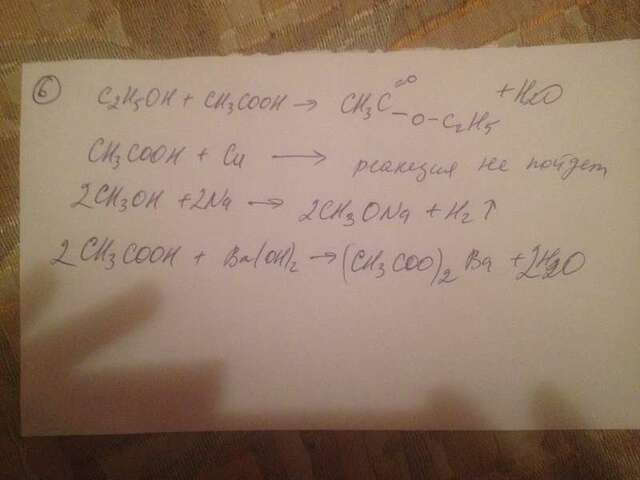 6
C2H5OH + CH3COOH → CH3C=O-O-C2H5 + H2O
CH3COOH + Cu → реакция не пойдет
2CH3OH + 2Na → 2CH3ONa + H2↑
2CH3COOH + Ba(OH)2 → (CH3COO)2Ba + 2H2O